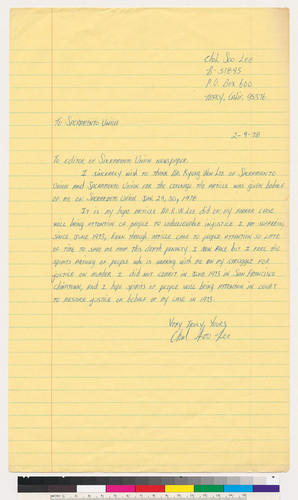 Chol Soo Lee
B-51845
P.O. Box 600
Tracy, Calif. 95376
To Sacramento Union
2-9-78
To editor of Sacramento Union Newspaper.
I sincerely wish to thank Dr. Kyung Won Lee of Sacramento
Union and Sacramento Union for the coverage the article was given behalf
of me on Sacramento Union Jan 29, 30, 1978.
It is my hope article Dr. K.W. Lee did on my murder case
will bring attention of people to unbelievable injustice I am suffering
since June 1973, even though article came to people attention so late
of time to save me from this death penalty I now face but I feel the
spirits and
of people who is working with me on my struggle for
justice on murder I did not commit in June 1973 in San Francisco
Chinatown, and I hope spirits of people will bring attention in court
to restore justice on behalf of my case in 1973.
Very Truly, Yours
Chol Soo Lee